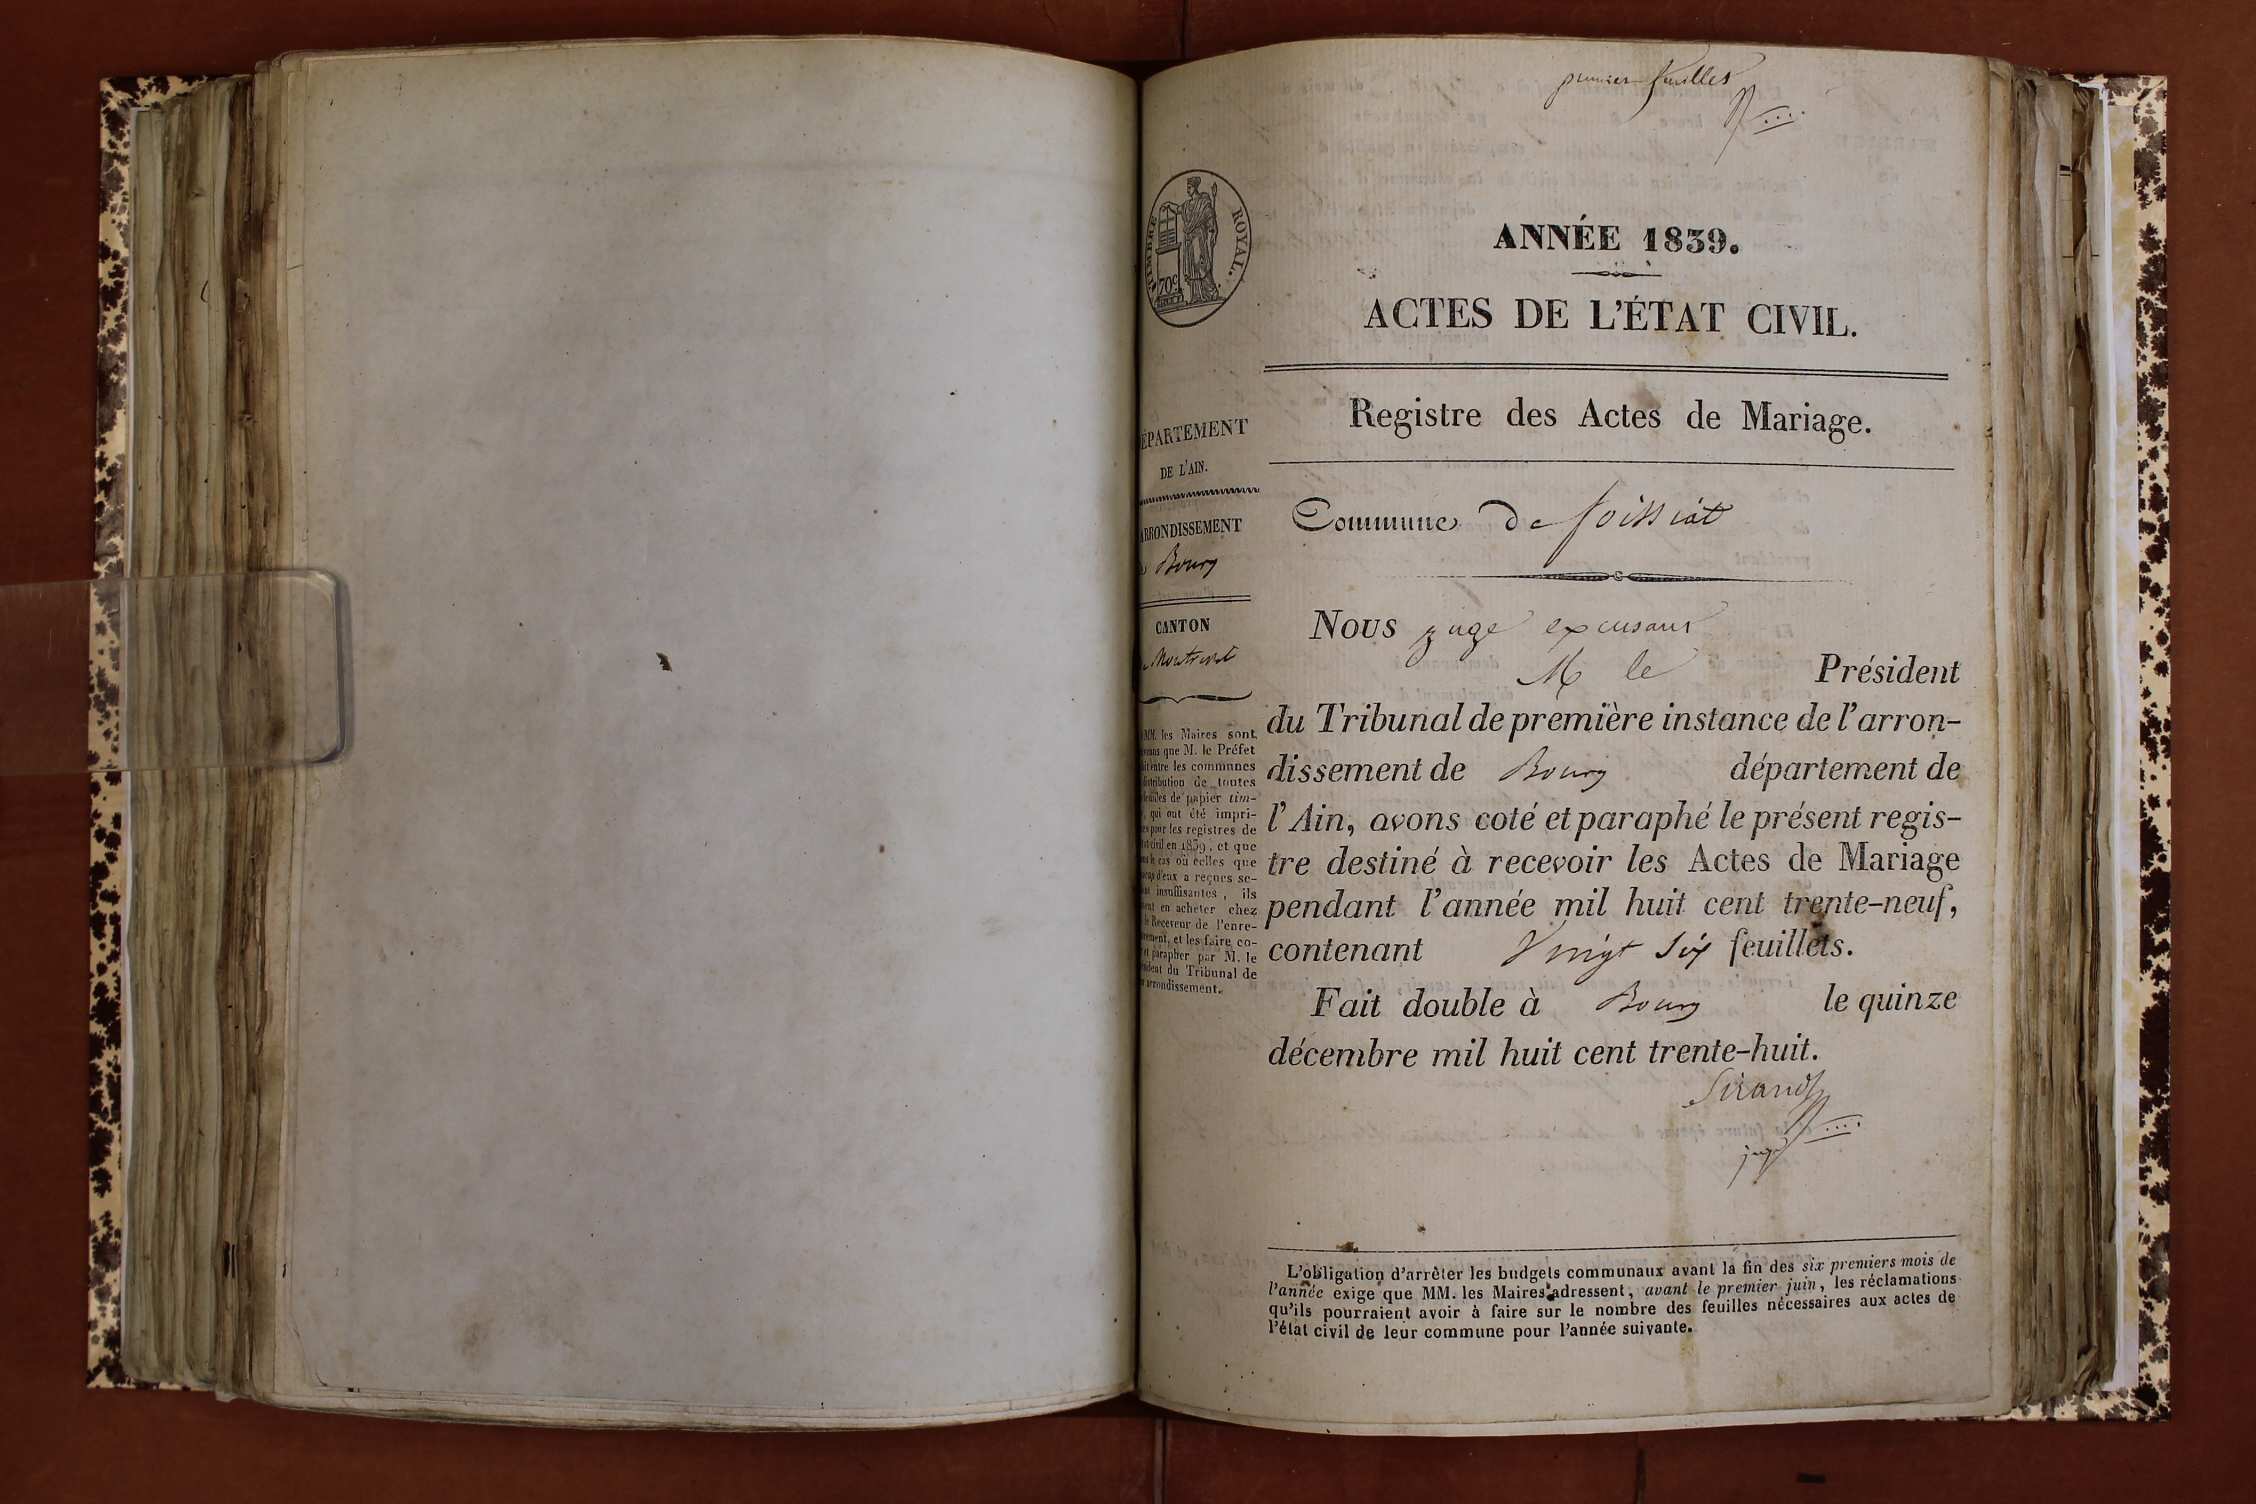 premier feuillet
TIMBRE ROYAL.
70 c.
ANNÉE 1839.
ACTES DE L'ÉTAT CIVIL.
Registre des Actes de Mariage.
ÉPARTEMENT
DE L'AIN.
ARRONDISSEMENT
Bourg
CANTON
Montrevel
MM. les Maires sont
que M. le Préfet
entre les communes
distribution de toutes
de papier tim-
qui ont été impri-
pour les registres de
civil en 1839, et que
le cas où celles que
d'eux a reçues se-
insuffisantes, ils
en acheter chez
Receveur de l'enre-
et les faire co-
parapher par M. le
du Tribunal de
arrondissement.
Commune de foissiat
Nous juge excusant
M le Président
du Tribunal de première instance de l'arron-
dissement de Bourg département de
l'Ain, avons coté et paraphé le présent regis-
tre destiné à recevoir les Actes de Mariage
pendant l'année mil huit cent trente-neuf,
contenant Vingt six feuillets.
Fait double à Bourg le quinze
décembre mil huit cent trente-huit.
Sirand
juge
L'obligation d'arrêter les budgets communaux avant la fin des six premiers mois de
l'année exige que MM. les Maires adressent, avant le premier juin, les réclamations
qu'ils pourraient avoir à faire sur le nombre des feuilles nécessaires aux actes de
l'état civil de leur commune pour l'année suivante.